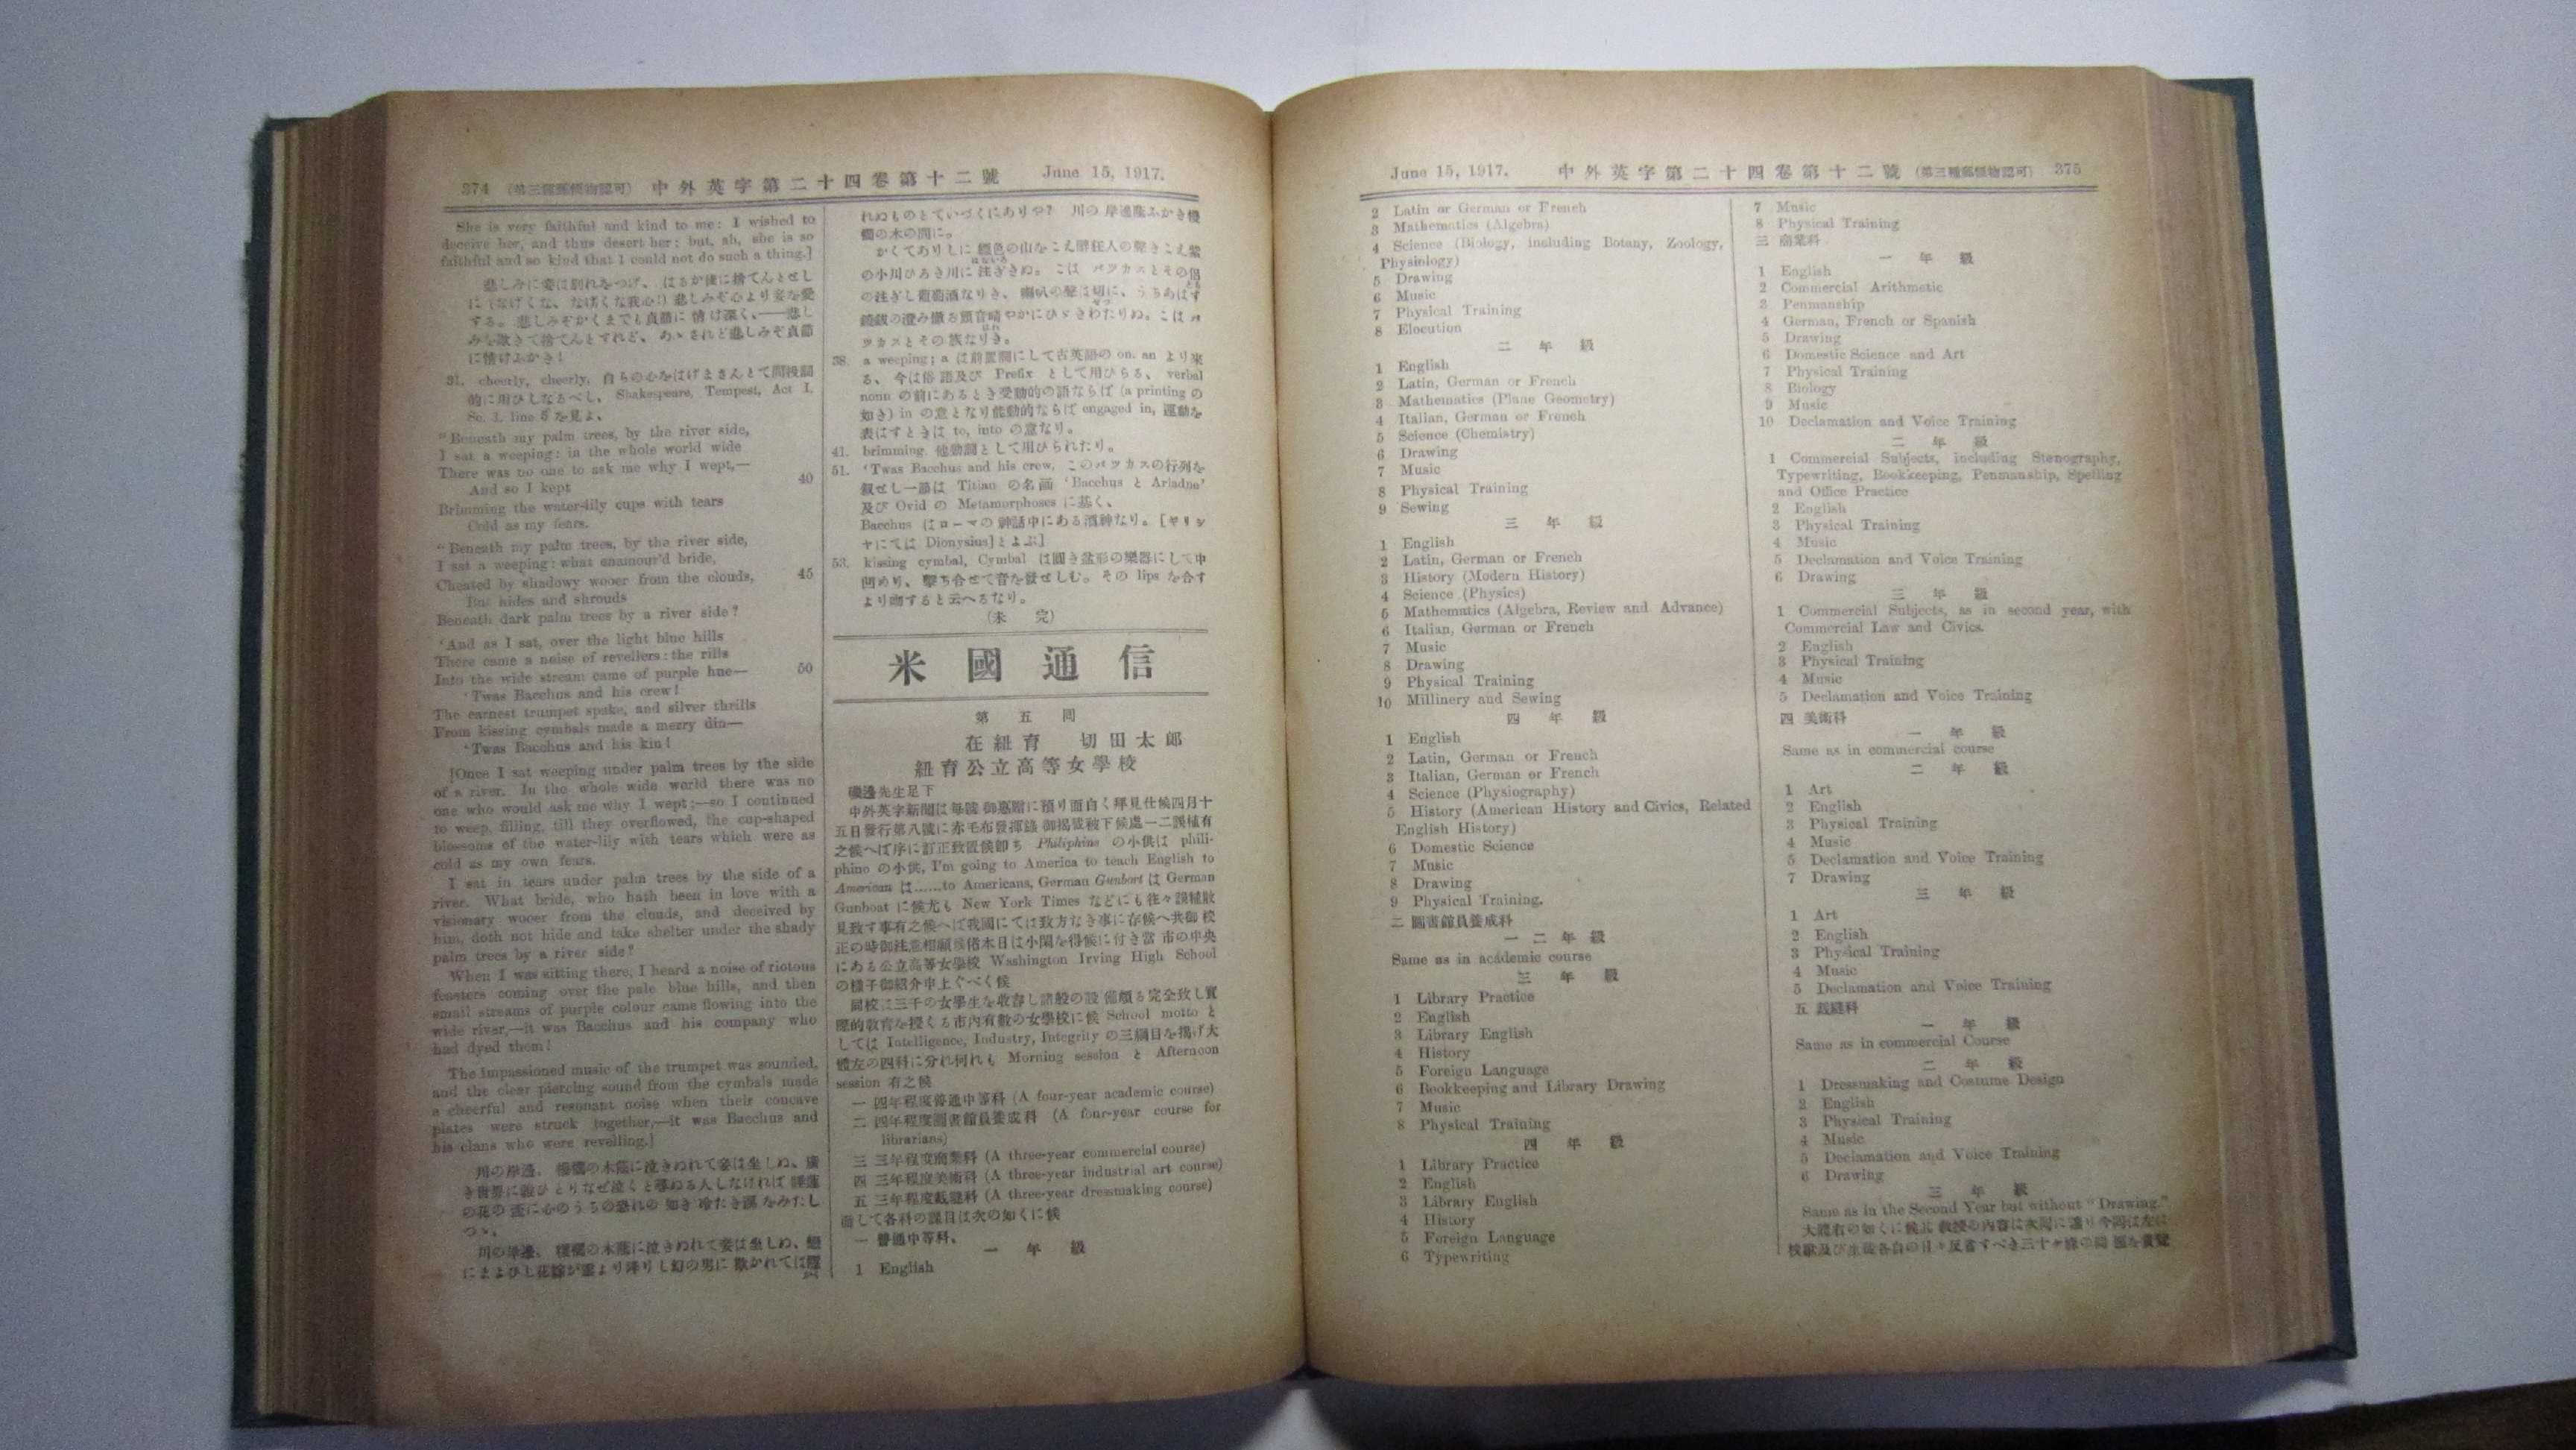 374 (第三種郵便物認可) 中外英字第二十四卷第十二號 June 15, 1917.
She is very faithful and kind to me: I wished to
deceive her, and thus desert her: but, ah, she is so
faithful and so kind that I could not do such a thing.]
悲しみに妾は別れをつげ、はるか後に捨てんとせし
に(なげくな、なげくな我心!) 悲しみぞ心より妾を愛
する。悲しみぞかくまでも貞節に情け深く、——悲し
みを欺きて捨てんとすれど、あゝされど悲しみぞ貞節
に情けふかき!
31. cheerly, cheerly, 自らの心をはげまさんとて間投詞
的に用ひしなるべし、 Shakespeare, Tempest, Act I.
Sc. I. line 6 を見よ、
"Beneath my palm trees, by the river side,
I sat a weeping: in the whole world wide
There was no one to ask me why I wept,—
And so I kept 40
Brimming the water-lily cups with tears
Cold as my fears.
"Beneath my palm trees, by the river side,
I sat a weeping: what enamour'd bride,
Cheated by shadowy wooer from the clouds, 45
But hides and shrouds
Beneath dark palm trees by a river side?
'And as I sat, over the light blue hills
There came a noise of revellers: the rills
Into the wide stream came of purple hue— 50
'Twas Bacchus and his crew!
The earnest trumpet spake, and silver thrills
From kissing cymbals made a merry din—
'Twas Bacchus and his kin!
[Once I sat weeping under palm trees by the side
of a river. In the whole wide world there was no
one who would ask me why I wept;—so I continued
to weep, filling, till they overflowed, the cup-shaped
blossoms of the water-lily with tears which were as
cold as my own fears.
I sat in tears under palm trees by the side of a
river. What bride, who hath been in love with a
visionary wooer from the clouds, and deceived by
him, doth not hide and take shelter under the shady
palm trees by a river side?
When I was sitting there, I heard a noise of riotous
feasters coming over the pale blue hills, and then
small streams of purple colour came flowing into the
wide river,—it was Bacchus and his company who
had dyed them!
The impassioned music of the trumpet was sounded,
and the clear piercing sound from the cymbals made
a cheerful and resonant noise when their concave
plates were struck together,—it was Bacchus and
his clans who were revelling.]
川の岸邊、椶櫚の木蔭に泣きぬれて妾は坐しぬ、廣
き世界に誰ひとりなぜ泣くと尋ぬる人しなければ 睡蓮
の花の盃に心のうちの恐れの如き冷たき涙をみたし
つゝ、
川の岸邊、椶櫚の木蔭に泣きぬれて妾は坐しぬ、戀
にまよひし花嫁が雲より降りし幻の男に欺かれては
れぬものとていづくにありや? 川の岸邊蔭ふかき椶
櫚の木の間に。
かくてありしに縹色の山をこえ醉狂人の聲きこえ紫
の小川ひろき川に注ぎきぬ。こは バツカスとその侶
の注ぎし葡萄酒なりき、喇叭の聲は切に、うちあはす
鐃鈸の澄み徹る顫音晴やかにひゞきわたりぬ。こは バ
ツカスとその族なりき。
38. a weeping; a は前置詞にして古英語の on, an より來
る、今は俗語及び Prefix として用ひらる、 verbal
noun の前にあるとき受動的の語ならば (a printing の
如き) in の意となり能動的ならば engaged in, 運動を
表はすときは to, into の意なり。
41. brimming, 他動詞として用ひられたり。
51. 'Twas Bacchus and his crew, このバツカスの行列を
叙せし一節は Titian の名画 'Bacchus と Ariadne'
及び Ovid の Metamorphoses に基く、
Bacchus はローマの神話中にある酒神なり。[ギリシ
ヤにては Dionysius] とよぶ]
53. kissing cymbal, Cymbal は圓き盆形の樂器にして中
凹めり、撃ち合せて音を發せしむ。その lips を合す
より吻すると云へるなり。
(未 完)
米國通信
第五囘
在紐育 切田太郎
紐育公立高等女學校
磯邊先生足下
中外英字新聞は毎號御惠贈に預り面白く拜見仕候四月十
五日發行第八號に赤毛布發揮錄御揭載被下候處一二誤植有
之候へば序に訂正致置候卽ち Philiphins の小供は phili-
phino の小供, I'm going to America to teach English to
American は......to Americans, German Gunbort は German
Gunboat に候尤も New York Times などにも往々誤植散
見致す事有之候へば我國にては致方なき事に存候へ共御校
正の時御注意相願候偖本日は小閑を得候に付き當市の中央
にある公立高等女學校 Washington Irving High School
の樣子御紹介申上ぐべく候
同校は三千の女學生を收容し諸般の設備頗る完全致し實
際的敎育を授くる市內有數の女學校に候 School motto と
しては Intelligence, Industry, Integrity の三綱目を揭げ大
體左の四科に分れ何れも Morning session と Afternoon
session 有之候
一 四年程度普通中等科 (A four-year academic course)
二 四年程度圖書館員養成科 (A four-year course for
librarians)
三 三年程度商業科 (A three-year commercial course)
四 三年程度美術科 (A three-year industrial art course)
五 三年程度裁縫科 (A three-year dressmaking course)
而して各科の課目は次の如くに候
一 普通中等科、
一年級
1 English
June 15, 1917. 中外英字第二十四卷第十二號 (第三種郵便物認可) 375
2 Latin or German or French
3 Mathematics (Algebra)
4 Science (Biology, including Botany, Zoology,
Physiology)
5 Drawing
6 Music
7 Physical Training
8 Elocution
二年級
1 English
2 Latin, German or French
3 Mathematics (Plane Geometry)
4 Italian, German or French
5 Science (Chemistry)
6 Drawing
7 Music
8 Physical Training
9 Sewing
三年級
1 English
2 Latin, German or French
3 History (Modern History)
4 Science (Physics)
5 Mathematics (Algebra, Review and Advance)
6 Italian, German or French
7 Music
8 Drawing
9 Physical Training
10 Millinery and Sewing
四年級
1 English
2 Latin, German or French
3 Italian, German or French
4 Science (Physiography)
5 History (American History and Civics, Related
English History)
6 Domestic Science
7 Music
8 Drawing
9 Physical Training.
二 圖書館員養成科
一二年級
Same as in academic course
三年級
1 Library Practice
2 English
3 Library English
4 History
5 Foreign Language
6 Bookkeeping and Library Drawing
7 Music
8 Physical Training
四年級
1 Library Practice
2 English
3 Library English
4 History
5 Foreign Language
6 Typewriting
7 Music
8 Physical Training
三 商業科
一年級
1 English
2 Commercial Arithmetic
3 Penmanship
4 German, French or Spanish
5 Drawing
6 Domestic Science and Art
7 Physical Training
8 Biology
9 Music
10 Declamation and Voice Training
二年級
1 Commercial Subjects, including Stenography,
Typewriting, Bookkeeping, Penmanship, Spelling
and Office Practice
2 English
3 Physical Training
4 Music
5 Declamation and Voice Training
6 Drawing
三年級
1 Commercial Subjects, as in second year, with
Commercial Law and Civics.
2 English
3 Physical Training
4 Music
5 Declamation and Voice Training
四 美術科
一年級
Same as in commercial course
二年級
1 Art
2 English
3 Physical Training
4 Music
5 Declamation and Voice Training
7 Drawing
三年級
1 Art
2 English
3 Physical Training
4 Music
5 Declamation and Voice Training
五 裁縫科
一年級
Same as in commercial Course
二年級
1 Dressmaking and Costume Design
2 English
3 Physical Training
4 Music
5 Declamation and Voice Training
6 Drawing
三年級
Same as in the Second Year but without "Drawing."
大體右の如くに候 敎授の內容は次囘に讓り今囘は左に
校歌及び生徒各自の日々反省すべき三十ヶ條の問題を